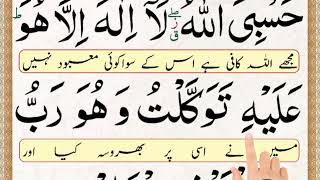 حَسْبِيَ اللّٰهُ لَآ اِلٰهَ اِلَّا هُوَ
مجھے اللہ کافی ہے اس کے سوا کوئی معبود نہیں
عَلَيْهِ تَوَكَّلْتُ وَهُوَ رَبُّ
میں نے اسی پر بھروسہ کیا اور